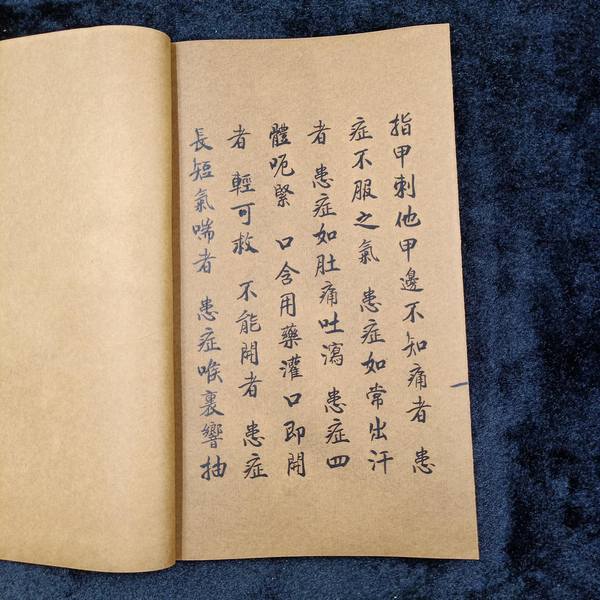 指甲刺他甲邊不知痛者 患
症不服之氣 患症如常出汗
者 患症如肚痛吐瀉 患症四
體呃緊 口含用藥灌口即開
者 輕可救 不能開者 患症
長短氣喘者 患症喉裏響抽